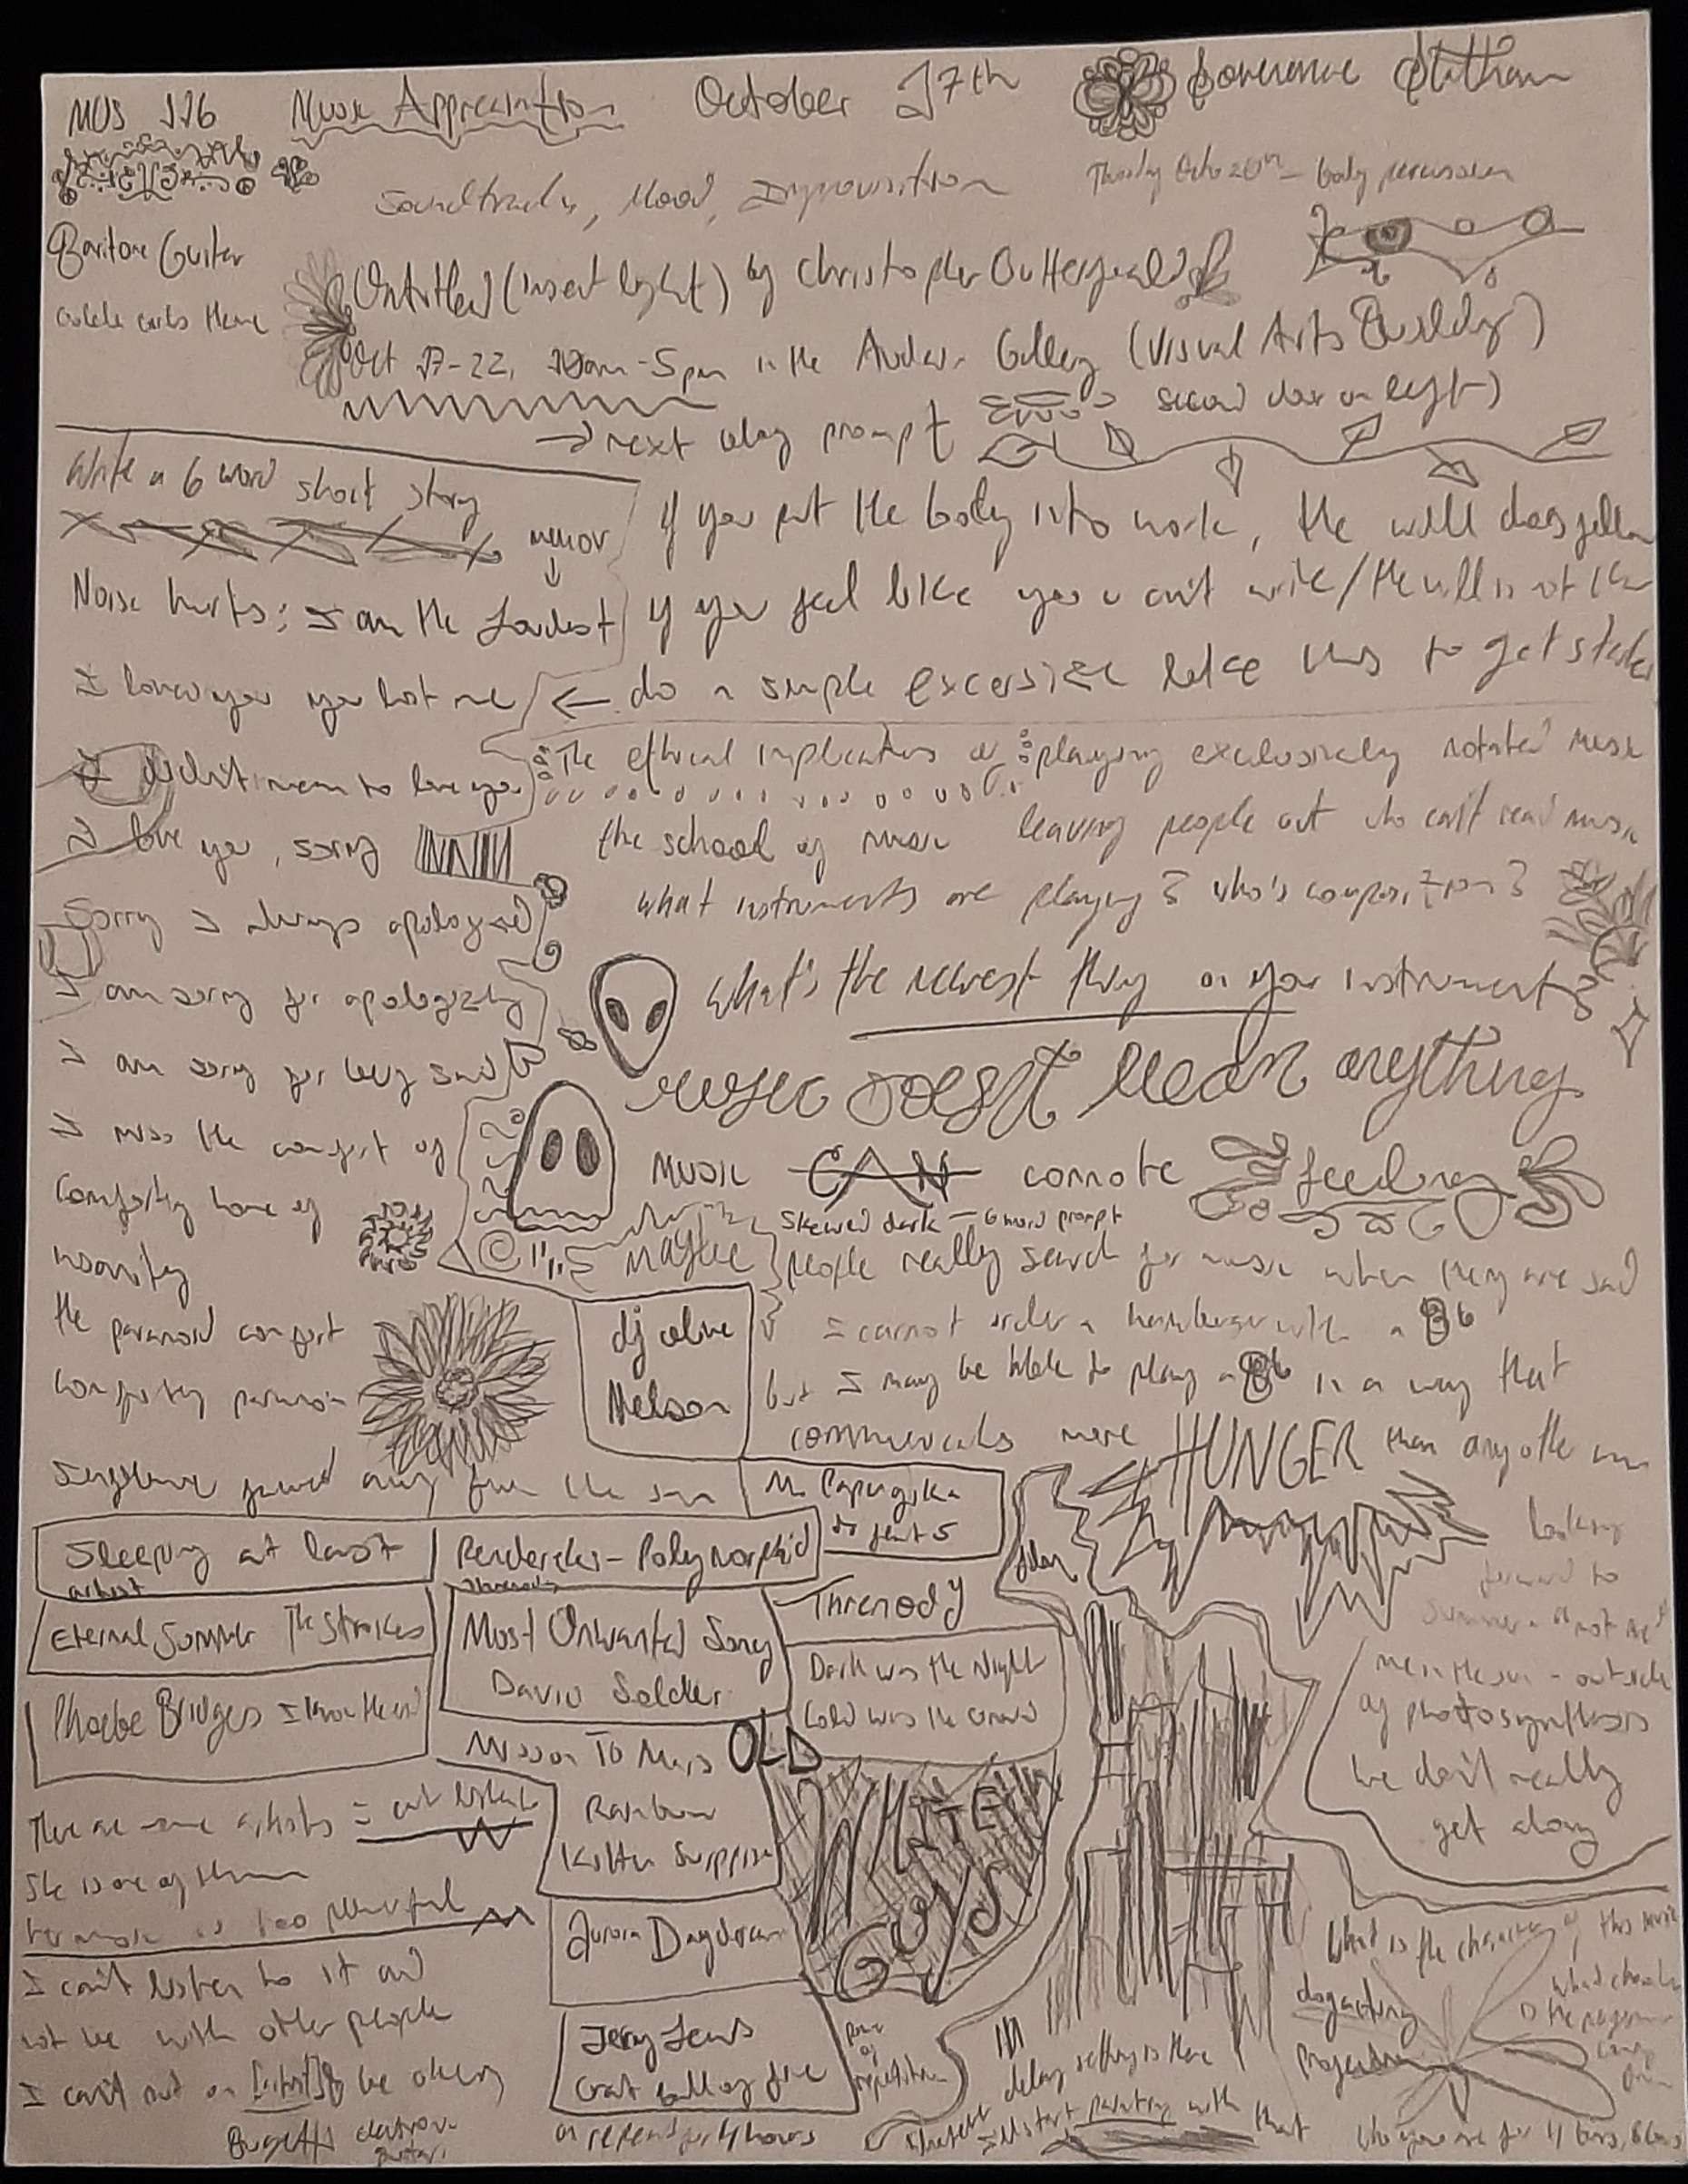 MUS 116 Music Appreciation October 17th
Soundtracks, Mood, Improvisition
Thursday Octo 20th - body percussion
Baritone Guitar
Untitled (insect light) by Christopher Butterfield
Oct 17-22, 10am-5pm in the Audain Gallery (Visual Arts Building)
second door on left)
→ next day prompt
Write a 6 word short story
memoir
↓
Noise hurts; I am the loudest
I loved you you lost me
I didn't mean to love you
I love you, sorry
Sorry I always apologized
I am sorry for apologizing
I am sorry for being sad
I miss the comfort of
comforting home of
insanity
the paranoid comfort
comforting paranoia
Sunflower faced away from the sun
if you put the body into work, the will does follow
if you feel like you can't write/the will is not there
← do a simple excersize like this to get started
The ethical implications of playing exclusively notated music
the school of music leaving people out who can't read music
what instruments are playing? who's composition?
What's the newest thing on your instrument?
music doesn't mean anything
Music CAN connote feeling
maybe
skewed dark — 6 word prompt
people really search for music when they are sad
I cannot order a hamburger with a Bb
but I may be able to play a Bb in a way that
communicates more HUNGER than any other
dj olive
Nelson
M. Papagika
Sleeping at last
artist
Penderecki - Polymorphia
Threnody
Eternal Summer The Strokes
Most Unwanted Song
David Solder
Dark was the Night
Cold was the Ground
Phoebe Bridgers I know the end
Mission To Mars
OLD
WHITE
GUYS
Rainbow
Kitten Surprise
Aurora Daydream
Jerry Lewis
Great ball of fire
on repeat for 4 hours
power
of
repetition
There are some artists I can't listen to
She is one of them
her music is too powerful
I can't listen to it and
not be with other people
I can't put on [artist] & be okay
looking
forward to
summer - "not me"
me in the sun - outside
of photosynthesis
we don't really
get along
What is the character of this music
delay setting is there
I'll start painting with that